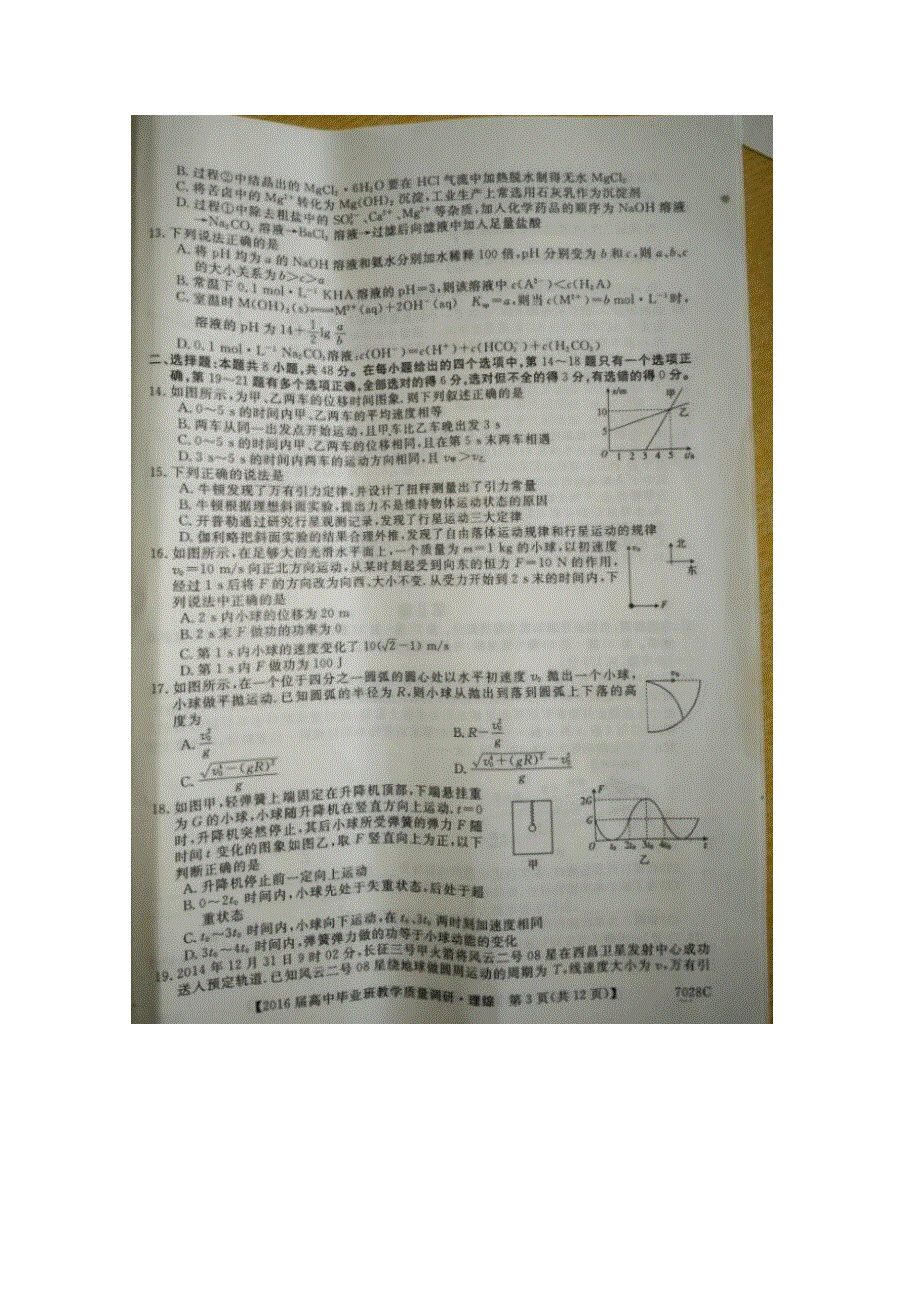 B. 过程②中结晶出的 MgCl₂·6H₂O要在 HCl 气流中加热脱水制得无水 MgCl₂
C. 将苦卤中的 Mg²⁺转化为 Mg(OH)₂ 沉淀,工业生产上常选用石灰乳作为沉淀剂
D. 过程①中除去粗盐中的 SO₄²⁻、Ca²⁺、Mg²⁺等杂质,加入化学药品的顺序为 NaOH 溶液
→Na₂CO₃ 溶液→BaCl₂ 溶液→过滤后向滤液中加入足量盐酸
13. 下列说法正确的是
A. 将 pH 均为 a 的 NaOH 溶液和氨水分别加水稀释 100 倍,pH 分别变为 b 和 c,则 a、b、c
的大小关系为 b>c>a
B. 常温下 0.1 mol·L⁻¹ KHA 溶液的 pH=3,则该溶液中 c(A²⁻)<c(H₂A)
C. 室温时 M(OH)₂(s)⇌M²⁺(aq)+2OH⁻(aq) Kₛₚ=a,则当 c(M²⁺)=b mol·L⁻¹时,
溶液的 pH 为 14+1/2 lg a/b
D. 0.1 mol·L⁻¹ Na₂CO₃溶液:c(OH⁻)=c(H⁺)+c(HCO₃⁻)+c(H₂CO₃)
二、选择题:本题共 8 小题,共 48 分。在每小题给出的四个选项中,第 14~18 题只有一个选项正
确,第 19~21 题有多个选项正确,全部选对的得 6 分,选对但不全的得 3 分,有选错的得 0 分。
14. 如图所示,为甲、乙两车的位移时间图象.则下列叙述正确的是
A. 0~5 s 的时间内甲、乙两车的平均速度相等
B. 两车从同一出发点开始运动,且甲车比乙车晚出发 3 s
C. 0~5 s 的时间内甲、乙两车的位移相同,且在第 5 s 末两车相遇
D. 3 s~5 s 的时间内两车的运动方向相同,且 v甲>v乙
x/m
甲
乙
10
5
0 1 2 3 4 5 t/s
15. 下列正确的说法是
A. 牛顿发现了万有引力定律,并设计了扭秤测量出了引力常量
B. 牛顿根据理想斜面实验,提出力不是维持物体运动状态的原因
C. 开普勒通过研究行星观测记录,发现了行星运动三大定律
D. 伽利略把斜面实验的结果合理外推,发现了自由落体运动规律和行星运动的规律
16. 如图所示,在足够大的光滑水平面上,一个质量为 m=1 kg 的小球,以初速度
v₀=10 m/s 向正北方向运动,从某时刻起受到向东的恒力 F=10 N 的作用,
经过 1 s 后将 F 的方向改为向西,大小不变.从受力开始到 2 s 末的时间内,下
列说法中正确的是
v₀
北
东
F
A. 2 s 内小球的位移为 20 m
B. 2 s 末 F 做功的功率为 0
C. 第 1 s 内小球的速度变化了 10(√2-1) m/s
D. 第 1 s 内 F 做功为 100 J
17. 如图所示,在一个位于四分之一圆弧的圆心处以水平初速度 v₀ 抛出一个小球,
小球做平抛运动.已知圆弧的半径为 R,则小球从抛出到落到圆弧上下落的高
度为
v₀
A. v₀²/g
B. R-v₀²/g
C. √(v₀⁴-(gR)²)/g
D. (√(v₀⁴+(gR)²)-v₀²)/g
18. 如图甲,轻弹簧上端固定在升降机顶部,下端悬挂重
为 G 的小球,小球随升降机在竖直方向上运动.t=0
时,升降机突然停止,其后小球所受弹簧的弹力 F 随
时间 t 变化的图象如图乙,取 F 竖直向上为正,以下
判断正确的是
甲
F
2G
G
0 t₀ 2t₀ 3t₀ 4t₀ t
乙
A. 升降机停止前一定向上运动
B. 0~2t₀ 时间内,小球先处于失重状态,后处于超
重状态
C. t₀~3t₀ 时间内,小球向下运动,在 t₀、3t₀ 两时刻加速度相同
D. 3t₀~4t₀ 时间内,弹簧弹力做的功等于小球动能的变化
19. 2014 年 12 月 31 日 9 时 02 分,长征三号甲火箭将风云二号 08 星在西昌卫星发射中心成功
送入预定轨道.已知风云二号 08 星绕地球做圆周运动的周期为 T,线速度大小为 v,万有引
【2016 届高中毕业班教学质量调研·理综 第 3 页(共 12 页)】 7028C